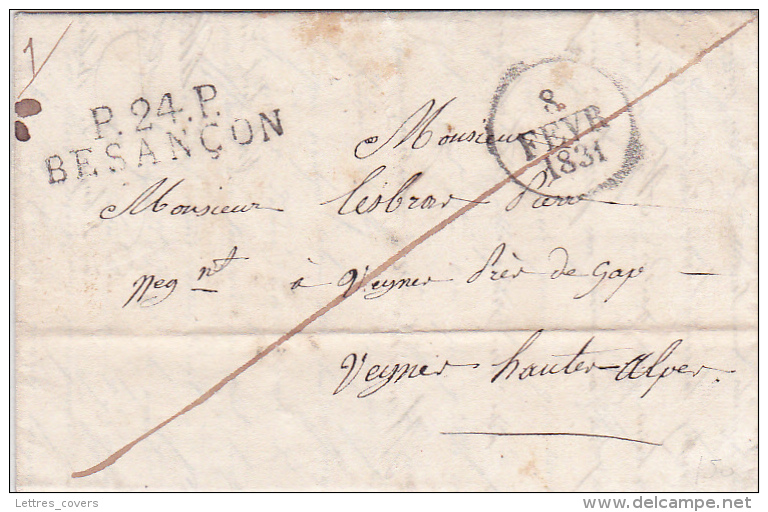 P. 24. P.
BESANÇON
8
FEVR
1831
Monsieur
Monsieur Lesbros Pierre
Neg nt à Veynes Près de Gap
Veynes hautes-alpes.
150
Lettres_covers
www.delcampe.net